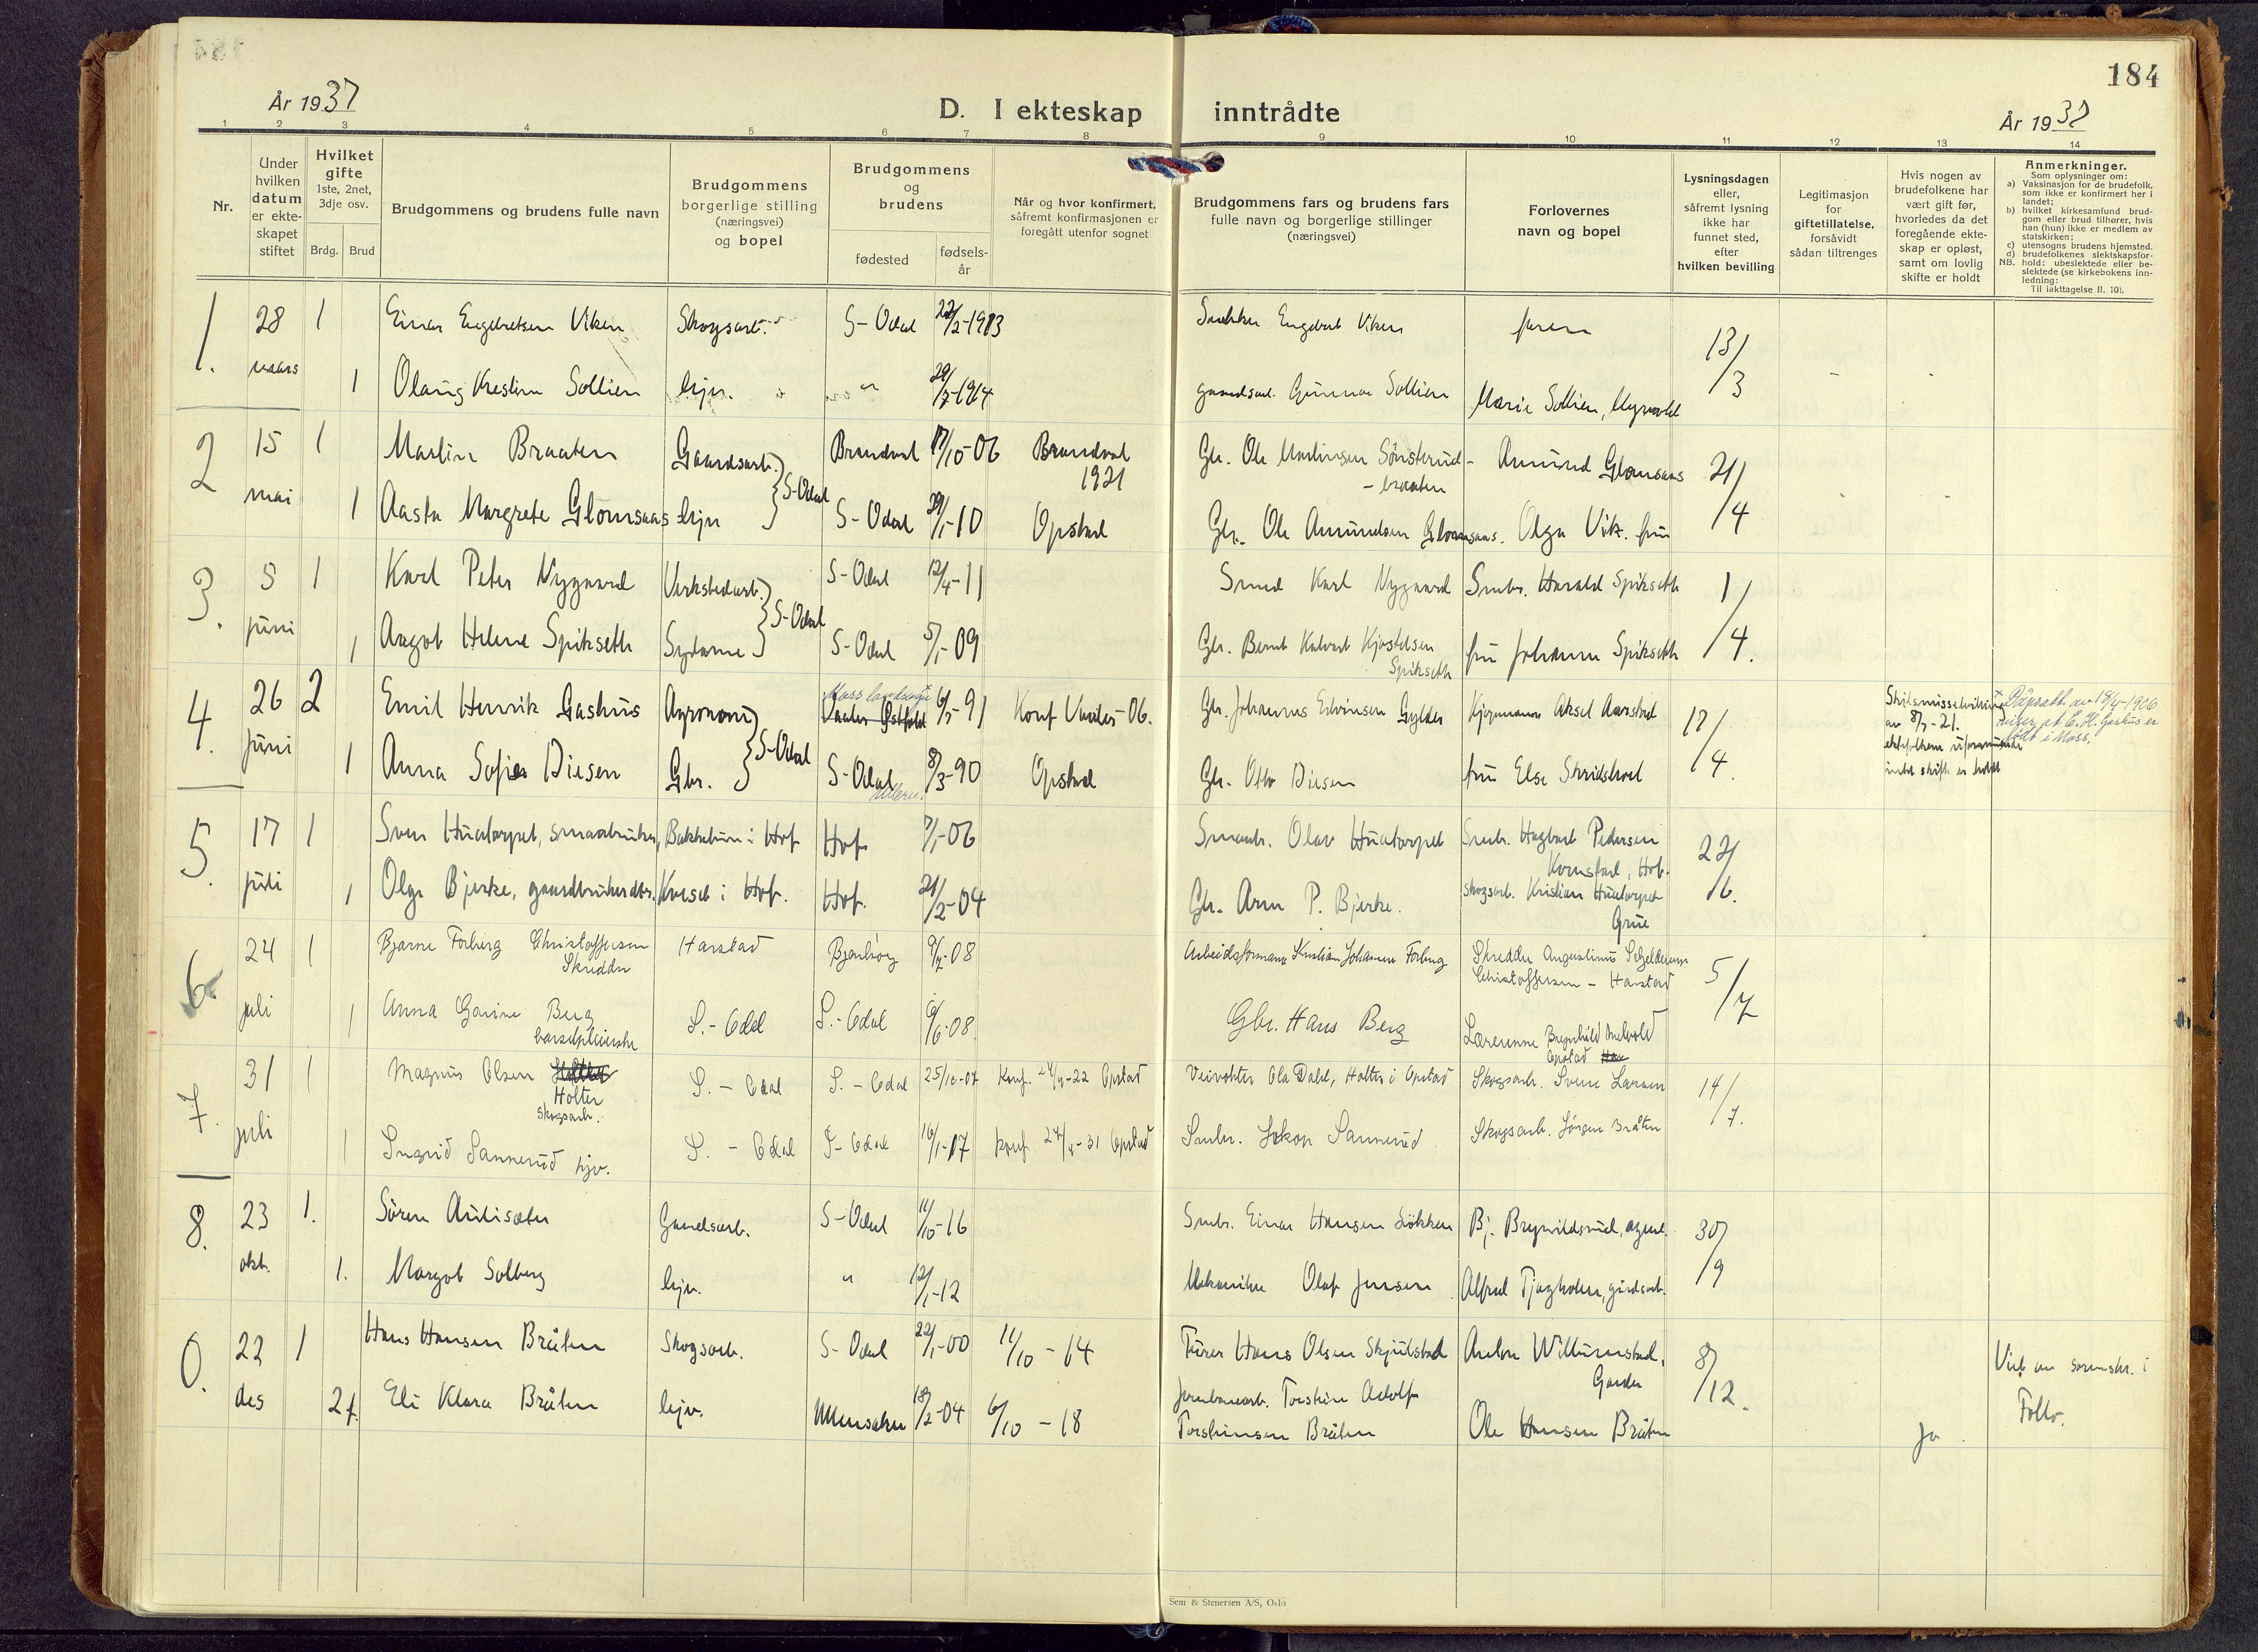 184
År 1937
D. I ekteskap inntrådte
År 1937
1 2 3 4 5 6 7 8 9 10 11 12 13 14
Nr.
Under hvilken datum er ekteskapet stiftet
Hvilket gifte
1ste, 2net, 3dje osv.
Brdg. Brud
Brudgommens og brudens fulle navn
Brudgommens borgerlige stilling (næringsvei) og bopel
Brudgommens og brudens
fødested
fødselsår
Når og hvor konfirmert, såfremt konfirmasjonen er foregått utenfor sognet
Brudgommens fars og brudens fars fulle navn og borgerlige stillinger (næringsvei)
Forlovernes navn og bopel
Lysningsdagen eller, såfremt lysning ikke har funnet sted, efter hvilken bevilling
Legitimasjon for giftetillatelse, forsåvidt sådan tiltrenges
Hvis nogen av brudefolkene har vært gift før, hvorledes da det foregående ekteskap er opløst, samt om lovlig skifte er holdt
Anmerkninger.
Som oplysninger om:
a) Vaksinasjon for de brudefolk, som ikke er konfirmert her i landet;
b) hvilket kirkesamfund brudgom eller brud tilhører, hvis han (hun) ikke er medlem av statskirken;
c) utensogns brudens hjemsted.
d) brudefolkenes slektskapsforhold: ubeslektede eller beslektede (se kirkebokens innledning:
NB.
Til iakttagelse II. 10).
1. 28 mars 1 Einar Engebretsen Viken Skogsarb. S-Odal 22/2-1913 Snekker Engebret Viken faren 13/3
1 Olaug Krestine Sollien hjv. " 29/7-1914 gaardsarb. Gunnar Sollien Marie Sollien, Myrvold
2 15 mai 1 Martin Braaten Gaardsarb. S-Odal Brandval 17/10-06 Brandval 1921 Gbr. Ole Martinsen Sønsterud-braaten Amund Glomsaas 21/4
1 Aasta Margrete Glomsaas hjv S-Odal 29/1-10 Opstad Gbr. Ole Amundsen Glomsaas. Olga Vik. fru
3. 5 juni 1 Karl Peter Nygaard Verkstedarb. S-Odal S-Odal 12/4-11 Smed Karl Nygaard Smbr. Harald Spikseth 1/4.
1 Aagot Helene Spikseth Sydame S-Odal 5/1-09 Gbr. Bernt Kalvart Kjøstelsen Spikseth fru Johanne Spikseth
4. 26 juni 2 Emil Henrik Gashus Agronom S-Odal Moss landsogn Vaaler Østfold 6/5-91 Konf Vaaler-06. Gbr. Johannes Edvinsen Gylder Kjøpmann Aksel Aarstad 17/4. Skilsmissebevilling av 8/7-21. intet skifte er holdt Dåpsatt. av 18/4-1906 viser, at E. H. Gashus er født i Moss.
1 Anna Sofie Diesen Gbr. S-Odal Ullern. 8/3-90 Opstad Gbr. Otto Diesen fru Else Skridshol
5. 17 juli 1 Sven Huatorpet, smaabruker, Bakketun i Hof Hof 7/1-06 Smaabr. Olav Huatorpet Smbr. Hagbart Pedersen Kornstad, Hof. 22/6.
1 Olga Bjerke, gaardbrukerdtr. Kvesel i Hof. Hof. 21/2-04 Gbr. Arne P. Bjerke. skogsarb. Kristian Huatorpet Grue
6. 24 juli 1 Bjarne Forberg Christoffersen Skredder Harstad Bjarkøy 9/7-08 Arbeidsformann Kristian Johansen Forberg Skredder Augustinus Christoffersen - Harstad 5/7
1 Anna Gavine Berg barselpleierske S.-Odal S.-Odal 6/6-08. Gbr. Hans Berg Lærerinne Brynhild Melvold Opstad
7. 31 juli 1 Magnus Olsen Holter skogsarb. S.-Odal S.-Odal 25/10-07 Konf. 24/9-22 Opstad Veivokter Ola Dahl, Holter i Opstad Skogsarb. Sverre Larsen 14/7.
1 Ingrid Sannerud hjv. S.-Odal S-Odal 16/1-17 konf 27/9-31 Opstad Smbr. Jakop Sannerud Skogsarb. Jörgen Bråten
8. 23 okt. 1. Sören Aulisæter Gaardsarb. S-Odal 11/10-16 Smbr. Einar Hansen Løkken Bj. Brynildsrud, agent. 30/9
1. Margot Solberg hjv. " 12/1-12 Mekaniker Olaf Jensen Alfred Tjugholen, gårdsarb.
22 des 1 Hans Hansen Bråten Skogsarb. S-Odal 22/1-00 11/10-14 Furer Hans Olsen Skjulstad Anton Willumstad, Garder 8/12. Viet av sorenskr. i Follo.
2 f. Eli Klara Bråten hjv. Ullensaker 18/2-04 6/10-18 Jernbanearb. Torstein Adolf Torsteinsen Bråten Ole Hansen Bråten Ja
Sem & Stenersen A/S, Oslo